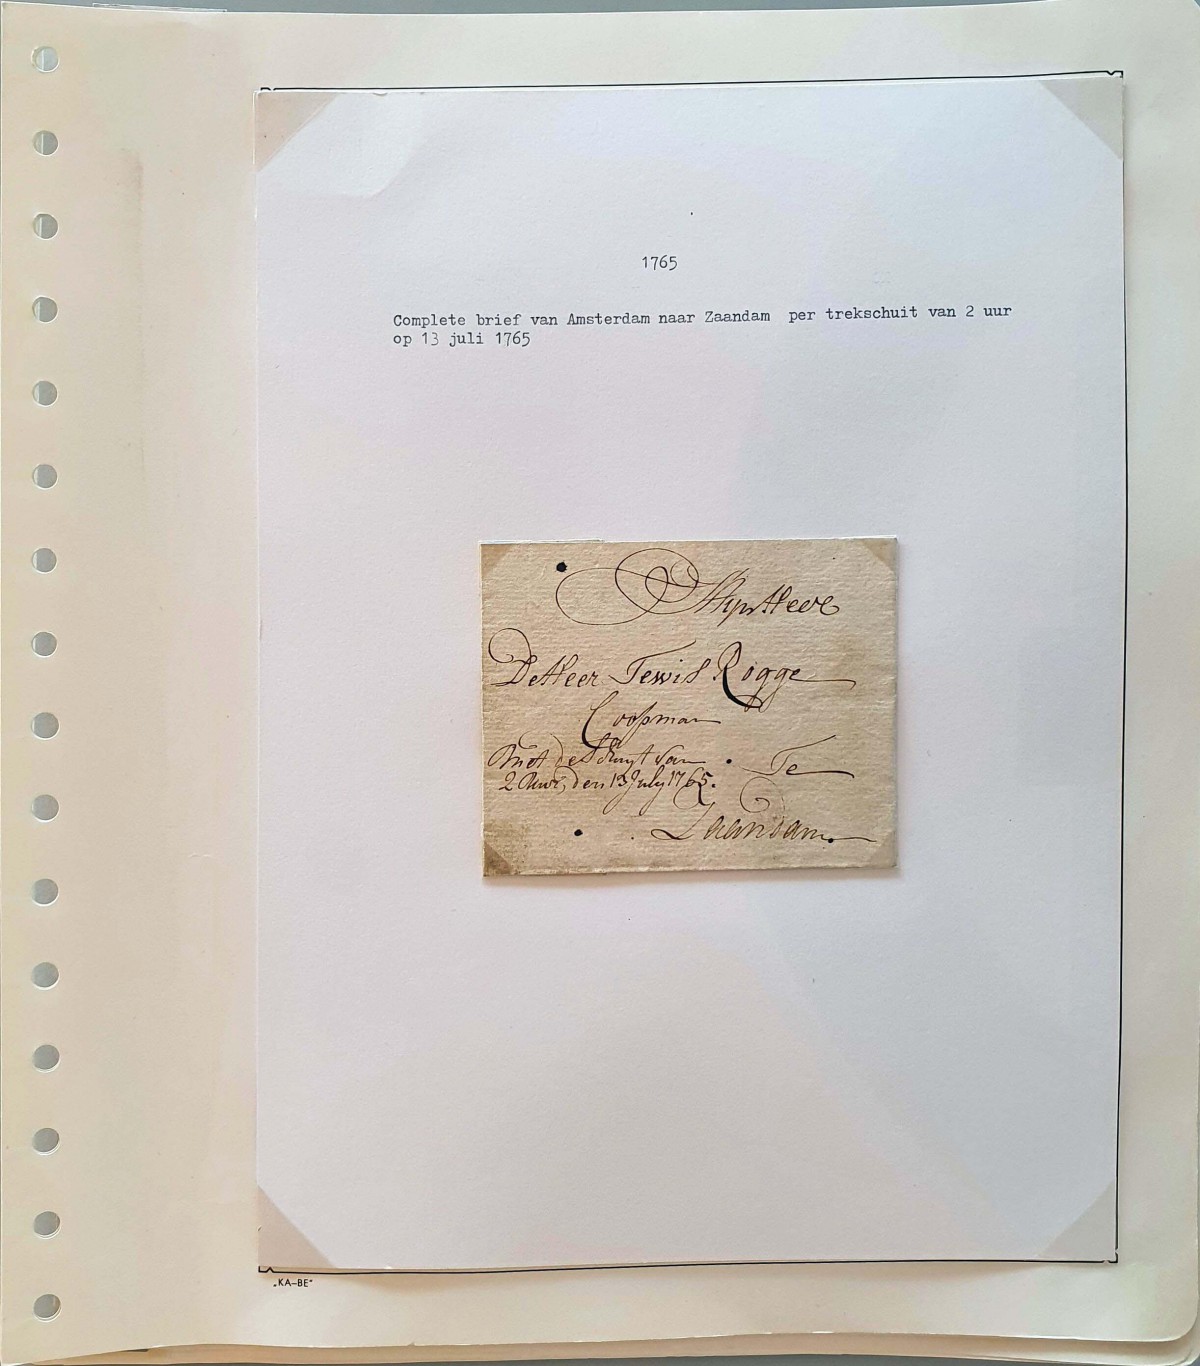 1765
Complete brief van Amsterdam naar Zaandam per trekschuit van 2 uur
op 13 juli 1765
Mijn Heer
De Heer Tewis Rogge
Coopman
Met de Schuyt van Te
2 Uur, den 13 July 1765.
Zaandam.
„KA-BE“